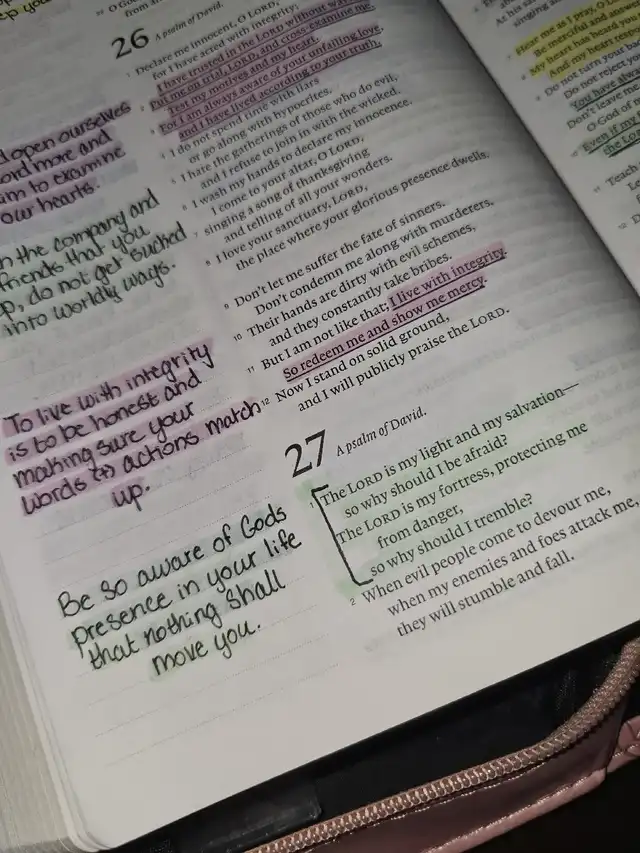 O God
from an
26 A psalm of David.
1 Declare me innocent, O LORD,
for I have acted with integrity;
I have trusted in the LORD without
2 Put me on trial, LORD, and cross-examine me.
Test my motives and my heart.
3 For I am always aware of your unfailing love,
and I have lived according to your truth.
4 I do not spend time with liars
or go along with hypocrites.
5 I hate the gatherings of those who do evil,
and I refuse to join in with the wicked.
6 I wash my hands to declare my innocence.
I come to your altar, O LORD,
7 singing a song of thanksgiving
and telling of all your wonders.
8 I love your sanctuary, LORD,
the place where your glorious presence dwells.
9 Don't let me suffer the fate of sinners.
Don't condemn me along with murderers.
10 Their hands are dirty with evil schemes,
and they constantly take bribes.
11 But I am not like that; I live with integrity.
So redeem me and show me mercy.
12 Now I stand on solid ground,
and I will publicly praise the LORD.
27 A psalm of David.
1 The LORD is my light and my salvation—
so why should I be afraid?
The LORD is my fortress, protecting me
from danger,
so why should I tremble?
2 When evil people come to devour me,
when my enemies and foes attack me,
they will stumble and fall.
open ourselves
ord more and
to examine
our hearts.
the company and
friends that you
do not get sucked
into worldly ways.
To live with integrity
is to be honest and
making sure your
words & actions match
up.
Be so aware of Gods
presence in your life
that nothing shall
move you.
singing an
Hear me as I pray, O L
Be merciful and answe
My heart has heard you
And my heart respo
Do not turn your ba
Do not reject yo
You have alwa
Don't leave m
O God of
Even if my
the L
Teach